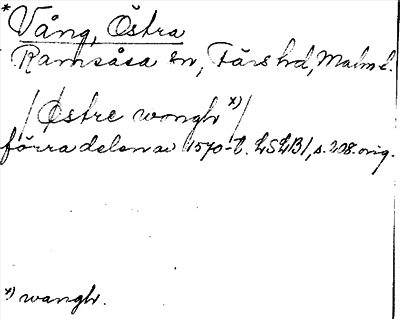 * Vång, Östra
Ramsåsa sn, Färs hd, Malm. l.
/Østre wongh x)/
förra delen av 1570-t. LSLB1, s. 208. orig.
x) wangh.